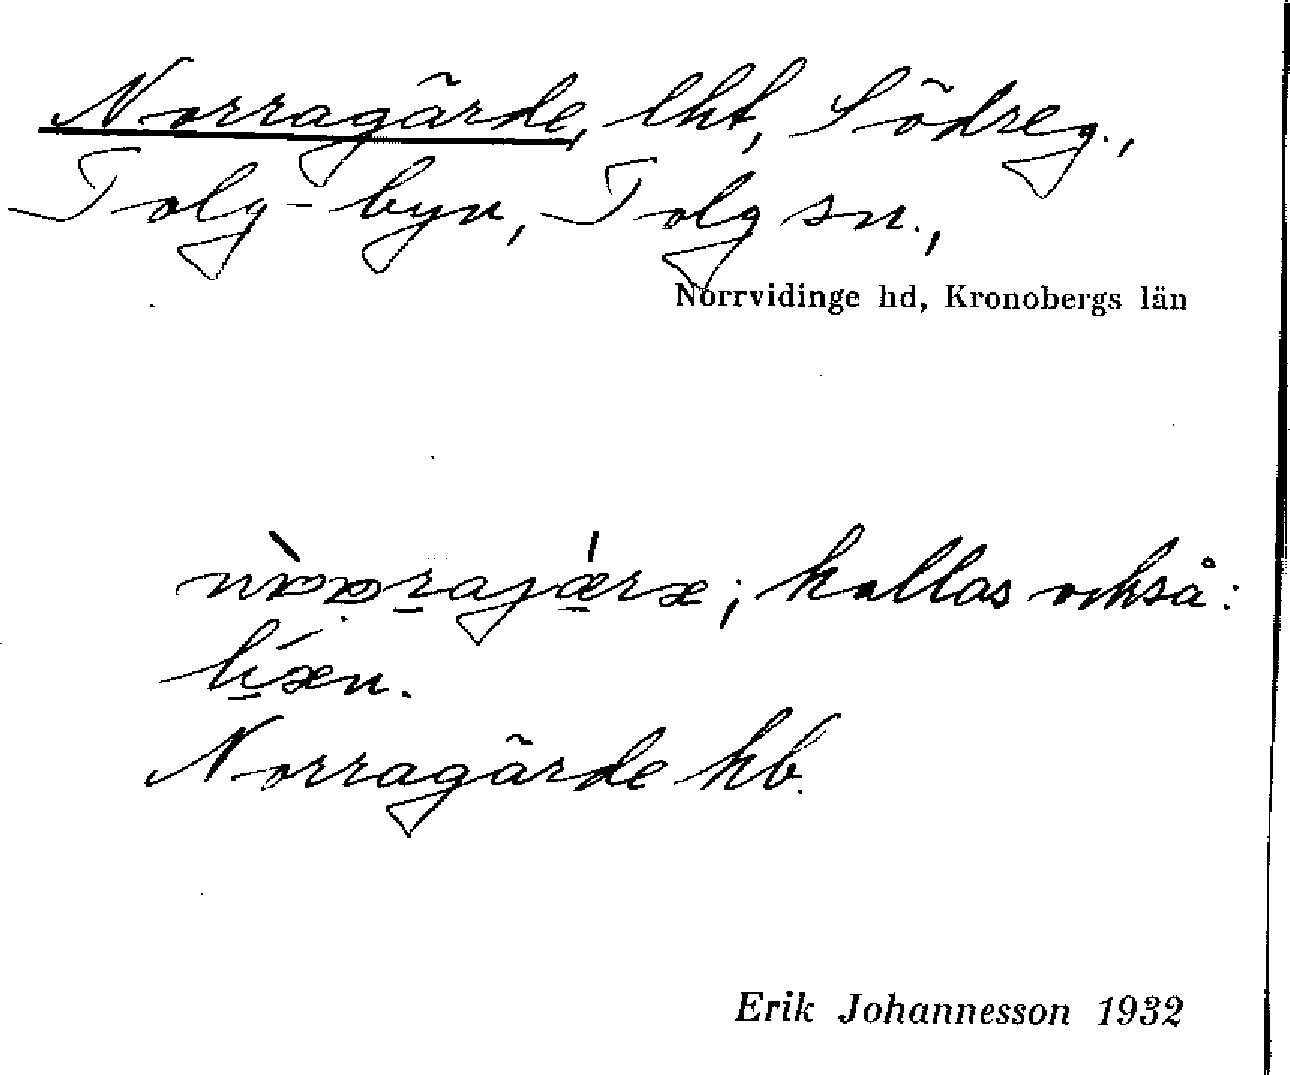 Norragärde, lht, Södreg.,
Tolg-byn, Tolg sn.,
Norrvidinge hd, Kronobergs län
kallas också:
Norragärde hb.
Erik Johannesson 1932